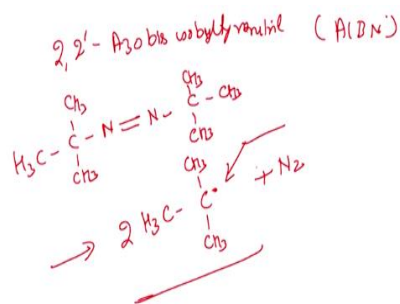 2,2'- Azobis isobutyronitril (AIBN)
CH3 CH3
H3C - C - N = N - C - CH3
CH3 CH3
→ 2 H3C - C• + N2
CH3
CH3